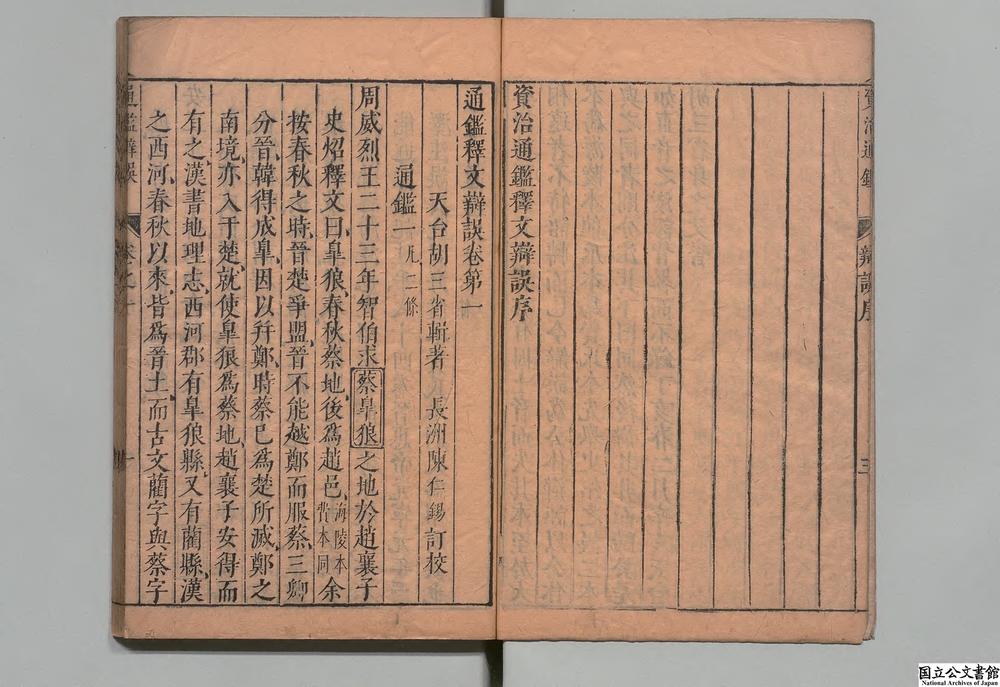 資治通鑑
辨誤序
三
資治通鑑釋文辯誤序
通鑑釋文辯誤卷第一
天台胡三省輯著 長洲陳仁錫訂校
通鑑一凡二條
周威烈王二十三年智伯求蔡皐狼之地於趙襄子
史炤釋文曰皐狼春秋蔡地後爲趙邑海陵本費本同余
按春秋之時晉楚爭盟晉不能越鄭而服蔡三卿
分晉韓得成皐因以幷鄭時蔡已爲楚所滅鄭之
南境亦入于楚就使皐狼爲蔡地趙襄子安得而
有之漢書地理志西河郡有皐狼縣又有藺縣漢
之西河春秋以來皆爲晉土而古文藺字與蔡字
通鑑辯誤
卷之一
一
国立公文書館
National Archives of Japan